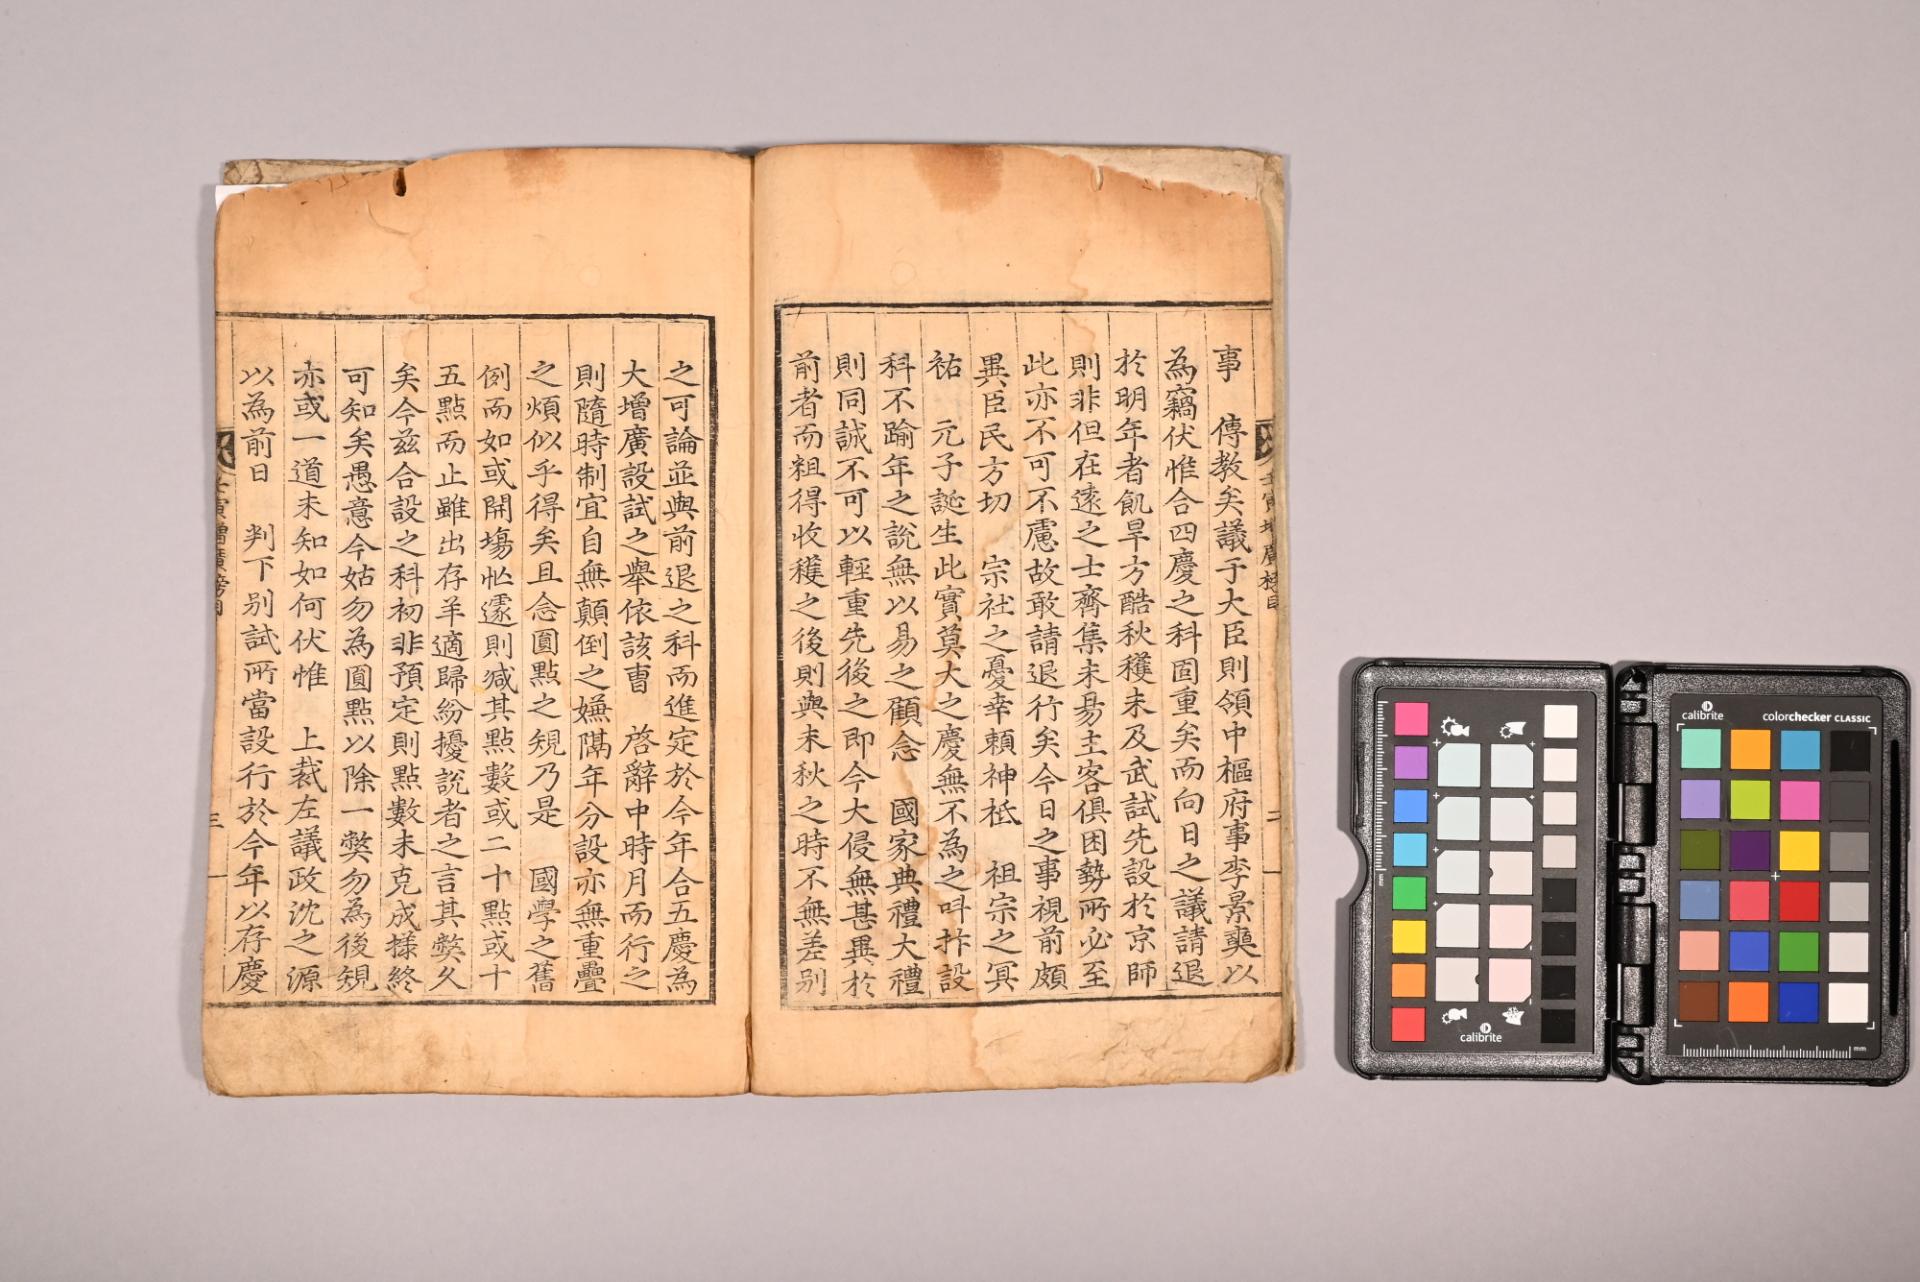 事　傳教矣議于大臣則領中樞府事李景奭以
為竊伏惟合四慶之科固重矣而向日之議請退
於明年者飢旱方酷秋穫未及武試先設於京師
則非但在遠之士齊集未易主客俱困勢所必至
此亦不可不慮故敢請退行矣今日之事視前頗
異臣民方切　宗社之憂幸賴神祗　祖宗之冥
祐　元子誕生此實莫大之慶無不為之呌抃設
科不踰年之說無以易之顧念　國家典禮大禮
則同誠不可以輕重先後之即今大侵無甚異於
前者而粗得收穫之後則與未秋之時不無差別
之可論並與前退之科而進定於今年合五慶為
大增廣設試之擧依該曹　啓辭中時月而行之
則隨時制宜自無顛倒之嫌隔年分設亦無重疊
之煩似乎得矣且念圓點之規乃是　國學之舊
例而如或開場忙遽則減其點數或二十點或十
五點而止雖出存羊適歸紛擾說者之言其獘久
矣今兹合設之科初非預定則點數未克成㨾終
可知矣愚意今姑勿為圓點以除一獘勿為後規
亦或一道未知如何伏惟　上裁左議政沈之源
以為前日　判下別試所當設行於今年以存慶
壬寅增廣榜目
二
壬寅增廣榜目
三
calibrite
calibrite
colorchecker CLASSIC
mm